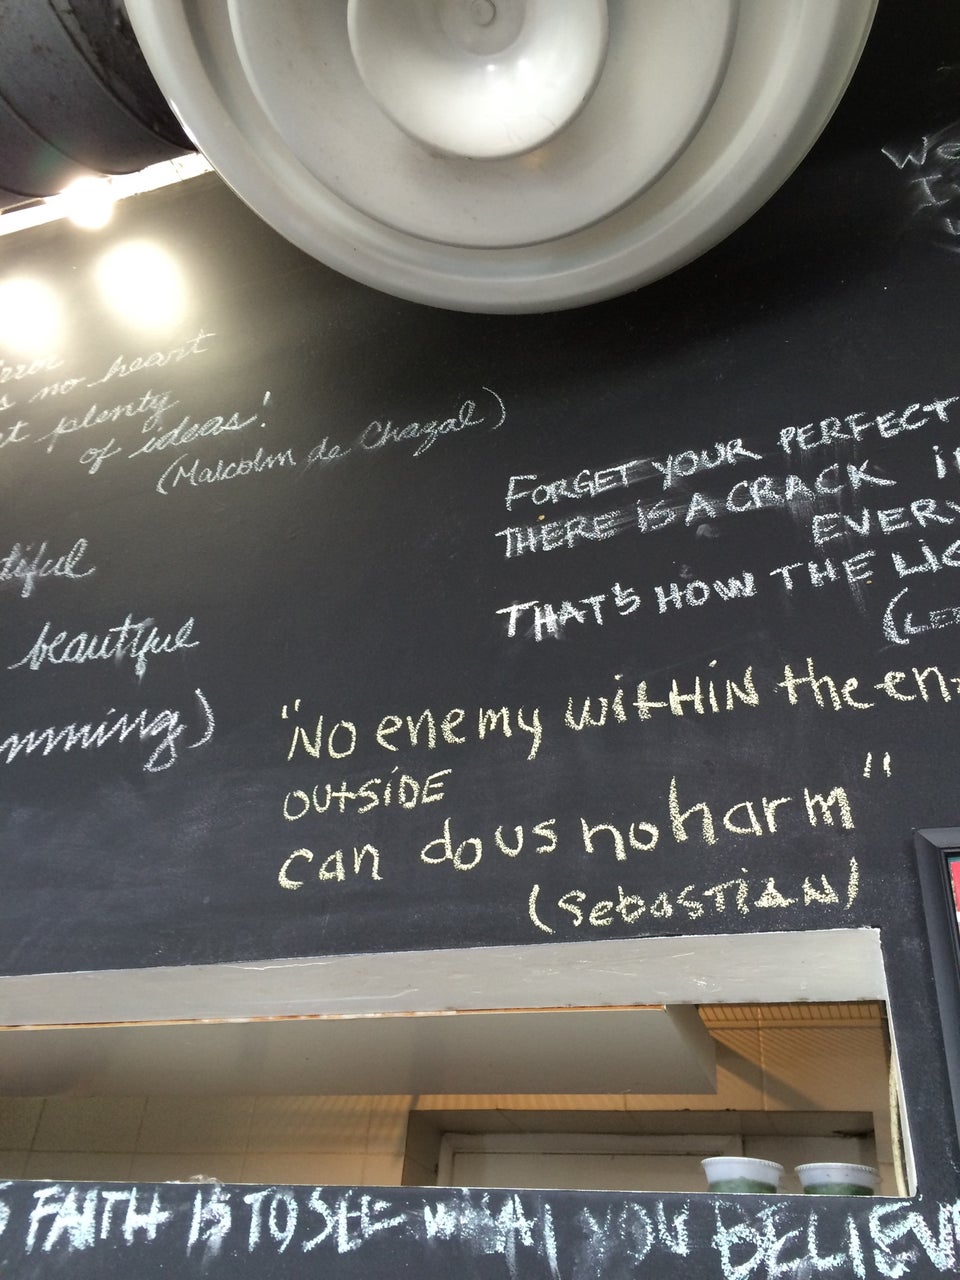 no heart
plenty
of ideas!
(Malcolm de Chazal)
beautiful
FORGET YOUR PERFECT
THERE IS A CRACK
EVERY
THAT'S HOW THE
"NO enemy witHIN the en
OUtSiDE
can do us no harm"
(SebaSTIAN)
FAITH IS TO SEE WHAT YOU BELIEV